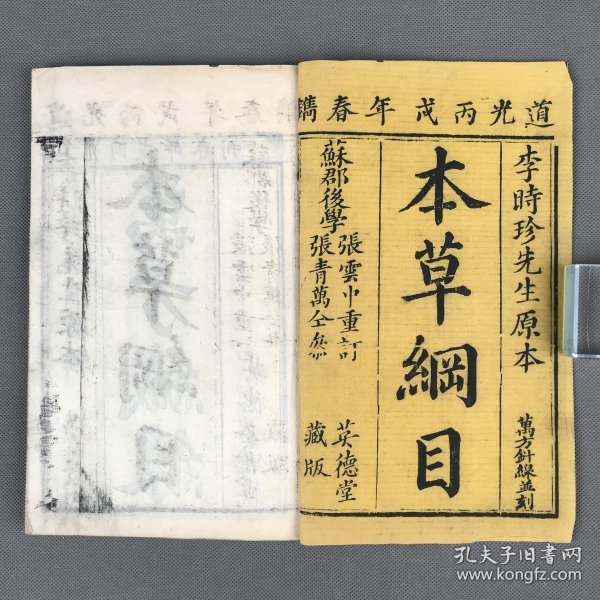 道光丙戌年春鐫
李時珍先生原本
萬方針線並刻
本草綱目
蘇郡後學
張雲中重訂
張青萬仝參
英德堂
藏版
孔夫子旧书网
www.kongfz.com